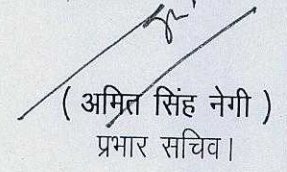 ( अमित सिंह नेगी )
प्रभार सचिव।